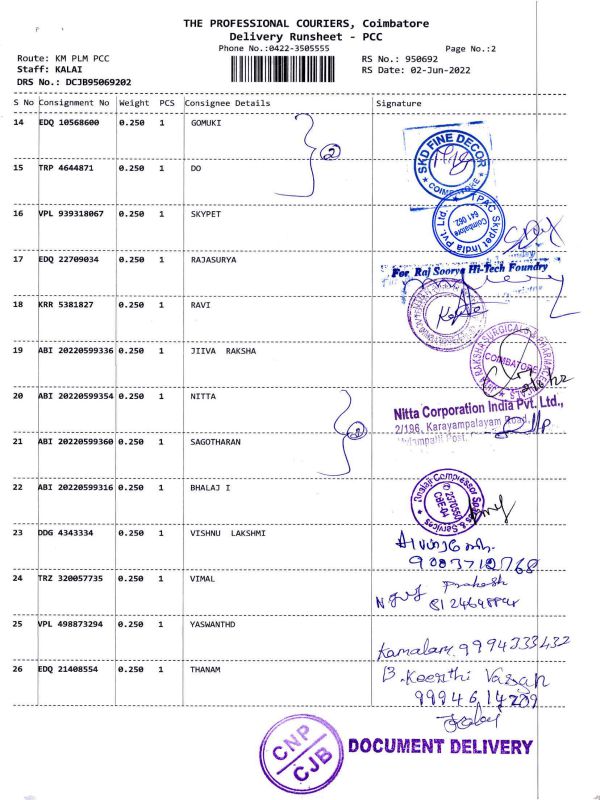 THE PROFESSIONAL COURIERS, Coimbatore
Delivery Runsheet - PCC
Phone No.:0422-3505555
Page No.:2
Route: KM PLM PCC
RS No.: 950692
Staff: KALAI
RS Date: 02-Jun-2022
DRS No.: DCJB95069202
S No Consignment No Weight PCS Consignee Details Signature
14 EDQ 10568600 0.250 1 GOMUKI
2
SKD FINE DECOR
COIMBATORE
15 TRP 4644871 0.250 1 DO
16 VPL 939318067 0.250 1 SKYPET
TPAC Skypet India Pvt. Ltd.
Coimbatore
641 062.
17 EDQ 22709034 0.250 1 RAJASURYA
For Raj Soorya Hi-Tech Foundry
18 KRR 5381827 0.250 1 RAVI
19 ABI 20220599336 0.250 1 JIIVA RAKSHA
JIIVA RAKSHA SURGICALS & PHARMACEUTICALS
COIMBATORE
20 ABI 20220599354 0.250 1 NITTA
2
Nitta Corporation India Pvt. Ltd.,
2/186, Karayampalayam Road,
Mylampatti Post,
21 ABI 20220599360 0.250 1 SAGOTHARAN
22 ABI 20220599316 0.250 1 BHALAJ I
Balaji Compressor Spares & Services
2570550
CBE-04
23 DDG 4343334 0.250 1 VISHNU LAKSHMI
9003710768
24 TRZ 320057735 0.250 1 VIMAL
Prakash
25 VPL 498873294 0.250 1 YASWANTHD
Kamalam 9994333432
26 EDQ 21408554 0.250 1 THANAM
B. Keerthi Vasan
9994614209
CNP
CJB
DOCUMENT DELIVERY